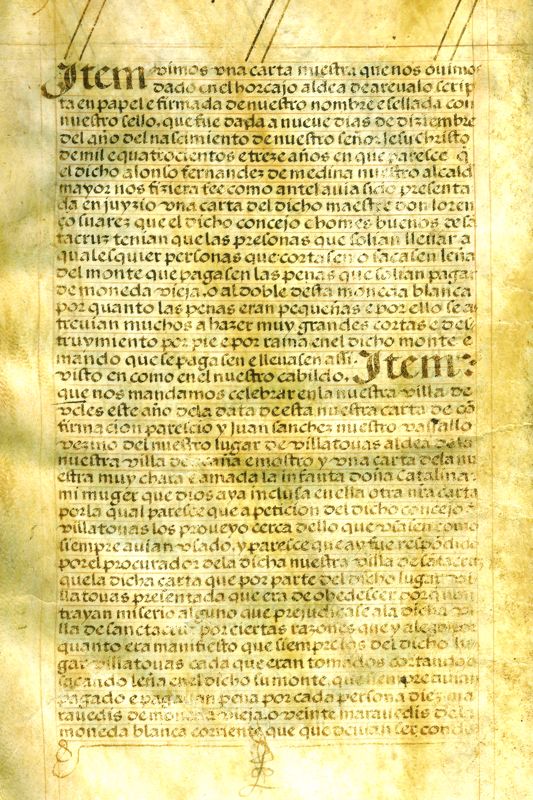 Item vimos vna carta nuestra que nos ouimos
dado en el horcajo aldea de areualo scrip
ta en papel e firmada de nuestro nombre e sellada con
nuestro sello, que fue dada a nueve dias de diziembre
del año del nascimiento de nuestro señor Jesu christo
de mil e quatrocientos e treze años en que paresce q
el dicho alonso fernandez de medina nuestro alcald
mayor nos fiziera fee como antel auia sido presenta
da en juyzio vna carta del dicho maestre don loren
ço suarez que el dicho concejo e homes buenos de sã
tacruz tenian que las presonas que solian lleuar a
qualesquier personas que cortasen o sacasen leña
del monte que pagasen las penas que solian pagar
de moneda vieja, o al doble desta moneda blanca
por quanto las penas eran pequeñas e por ello se a
treuian muchos a hazer muy grandes cortas e des
truymiento por pie e por rama en el dicho monte e
mando que se pagasen e lleuasen assi. Item
visto en como en el nuestro cabildo,
que nos mandamos celebrar en la nuestra villa de
vcles este año dela data de esta nuestra carta de cõ
firmacion parescio y Juan sanchez nuestro vasallo
vezino del nuestro lugar de villatouas aldea de la
nuestra villa de ocaña e mostro y vna carta dela nu
estra muy chara e amada la infanta doña Catalina
mi muger que dios aya inclusa en ella otra nra carta
por la qual paresce que a peticion del dicho concejo
villatouas los proueyo cerca dello que vsasen como
siempre auian vsado, y paresce que ay fue respõdido
por el procurador dela dicha nuestra villa de sãtacruz
quela dicha carta que por parte del dicho lugar vi
llatouas presentada que era de obedescer por quãto
trayan miserio alguno que prejudicase ala dicha vi
lla de sanctacruz por ciertas razones que y alego por
quanto era manifiesto que siempre los del dicho lu
gar villatouas cada que eran tomados cortando o
sacando leña en el dicho su monte, que siempre auian
pagado e pagauan pena por cada persona diez ma
rauedis de moneda vieja, o veinte marauedis dela
moneda blanca corriente, que que deuian ser